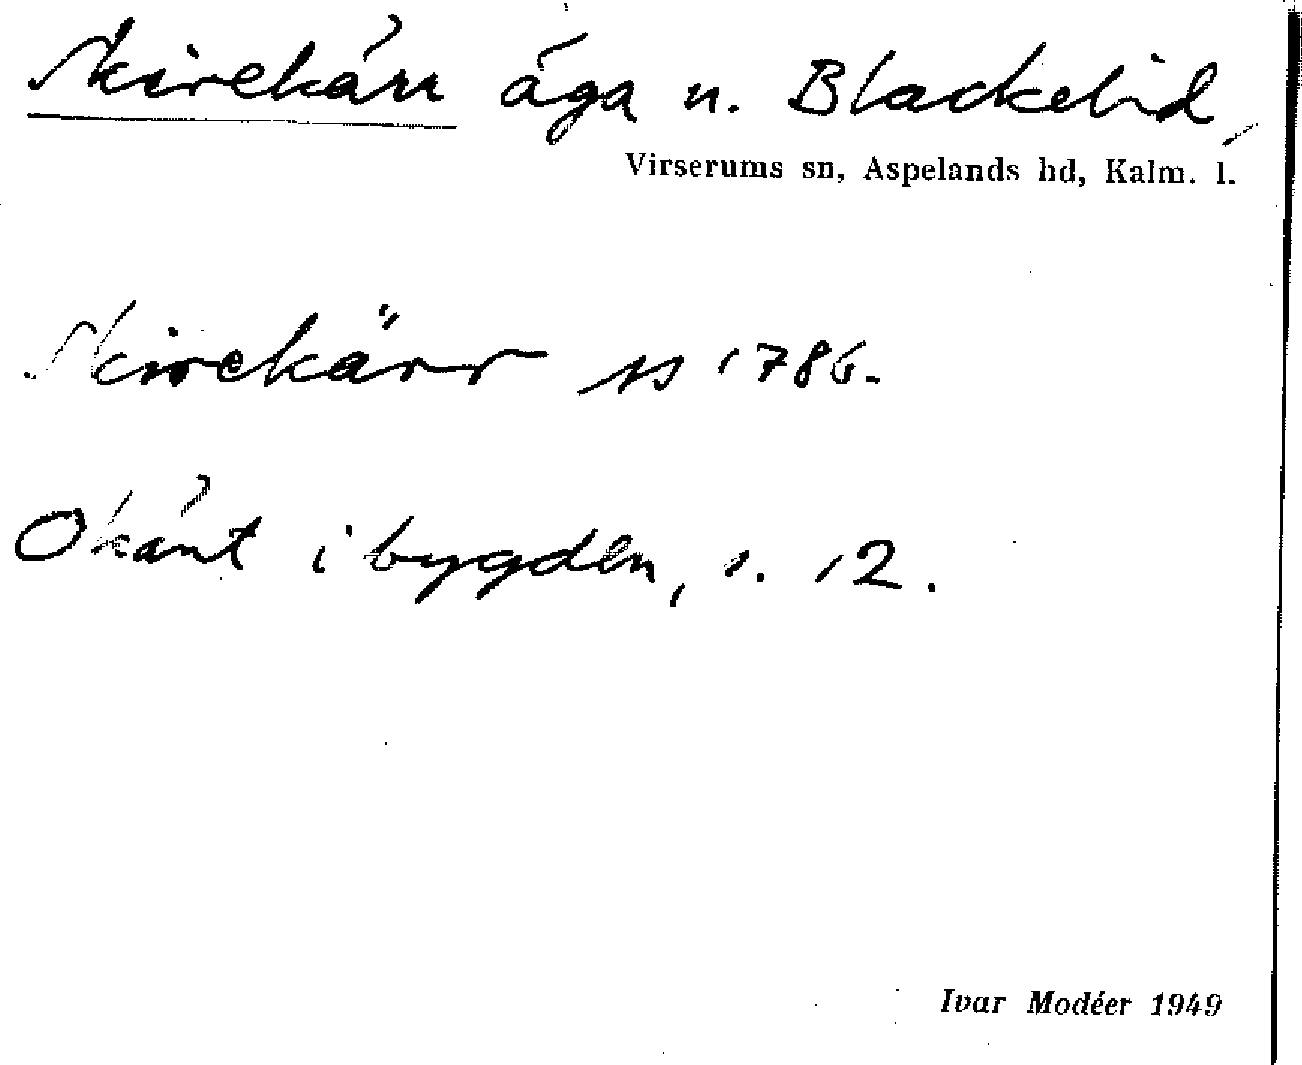 Skirekärr äga u. Blackelid,
Virserums sn, Aspelands hd, Kalm. l.
Skirekärr ss 1786.
Okänt i bygden, s. 12.
Ivar Modéer 1949